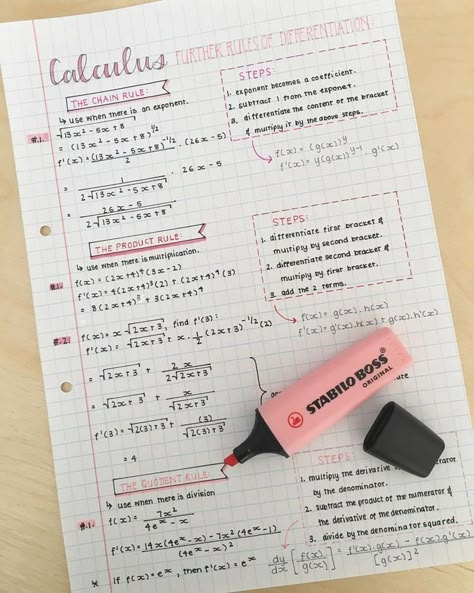 Calculus FURTHER RULES OF DIFFERENTIATION:
THE CHAIN RULE:
↳ use when there is an exponent.
#1. √13x²-5x+8
= (13x²-5x+8)^1/2
f'(x) = (13x²-5x+8)^-1/2 / 2 · (26x-5)
= 1 / 2√13x²-5x+8 · 26x-5
= 26x-5 / 2√13x²-5x+8
STEPS:
1. exponent becomes a coefficient.
2. subtract 1 from the exponent.
3. differentiate the content of the bracket
& multiply it by the above steps.
f(x) = (g(x))^y
f'(x) = y(g(x))^y-1 · g'(x)
THE PRODUCT RULE:
↳ use when there is multiplication.
#1. f(x) = (2x+4)⁴(3x-2)
f'(x) = 4(2x+4)³(2) + (2x+4)⁴(3)
= 8(2x+4)³ + 3(2x+4)⁴
STEPS:
1. differentiate first bracket &
multiply by second bracket.
2. differentiate second bracket &
multiply by first bracket.
3. add the 2 terms.
f(x) = g(x).h(x)
f'(x) = g'(x).h(x) + g(x).h'(x)
#2. f(x) = x√2x+3, find f'(3):
f'(x) = √2x+3 + x · 1/2 (2x+3)^-1/2 (2)
= √2x+3 + 2x / 2√2x+3
= √2x+3 + x / √2x+3
f'(3) = √2(3)+3 + (3) / √2(3)+3
= 4
STABILO BOSS
ORIGINAL
THE QUOTIENT RULE:
↳ use when there is division
#1. f(x) = 7x² / 4eˣ-x
f'(x) = 14x(4eˣ-x) - 7x²(4eˣ-1) / (4eˣ-x)²
* If f(x) = eˣ, then f'(x) = eˣ
STEPS:
1. multiply the derivative
by the denominator.
2. subtract the product of the numerator &
the derivative of the denominator.
3. divide by the denominator squared.
dy/dx [f(x)/g(x)] = f'(x).g(x) - f(x).g'(x) / [g(x)]²